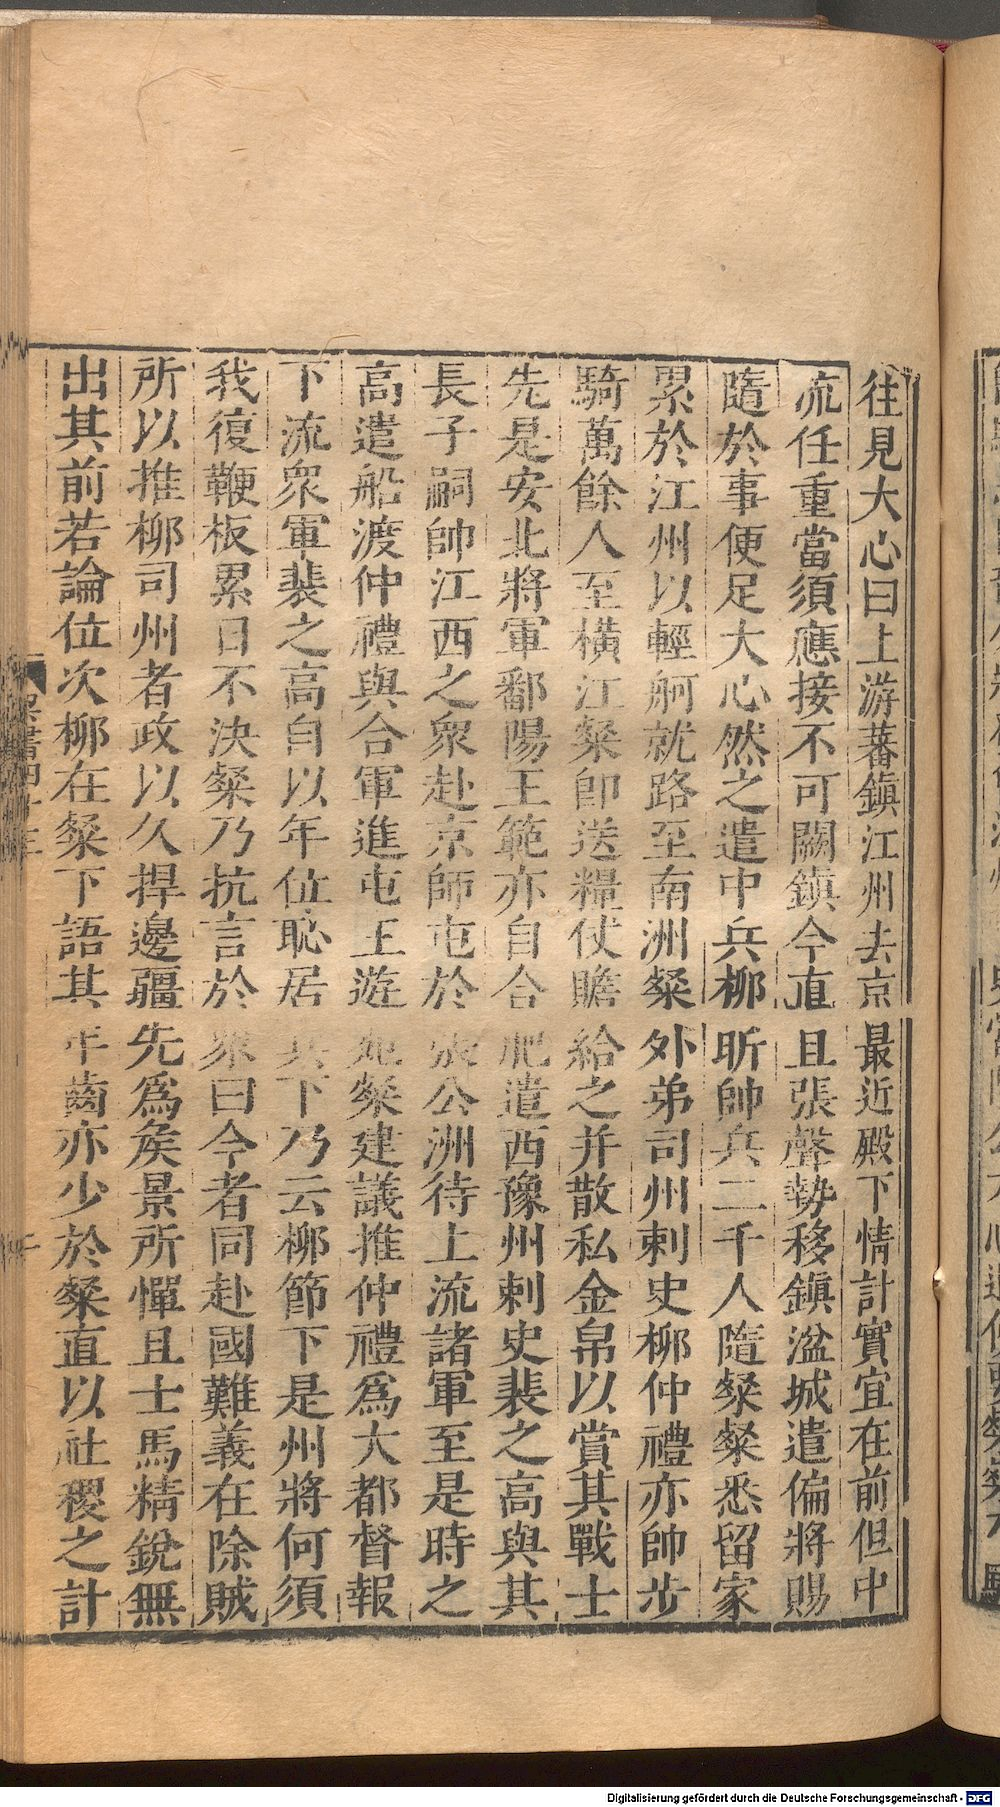 往見大心曰上游蕃鎮江州去京最近殿下情計實宜在前但中
流任重當須應接不可闕鎮今直且張聲勢移鎮湓城遣偏將賜
隨於事便足大心然之遣中兵柳昕帥兵二千人隨粲粲悉留家
累於江州以輕舸就路至南洲粲外弟司州刺史柳仲禮亦帥步
騎萬餘人至橫江粲即送糧仗贍給之并散私金帛以賞其戰士
先是安北將軍鄱陽王範亦自合肥遣西豫州刺史裴之高與其
長子嗣帥江西之眾赴京師屯於張公洲待上流諸軍至是時之
高遣船渡仲禮與合軍進屯王遊苑粲建議推仲禮為大都督報
下流眾軍裴之高自以年位恥居其下乃云柳節下是州將何須
我復鞭板累日不決粲乃抗言於眾曰今者同赴國難義在除賊
所以推柳司州者政以久捍邊疆先為矦景所憚且士馬精銳無
出其前若論位次柳在粲下語其年齒亦少於粲直以社稷之計
梁書四十三
Digitalisierung gefördert durch die Deutsche Forschungsgemeinschaft - DFG